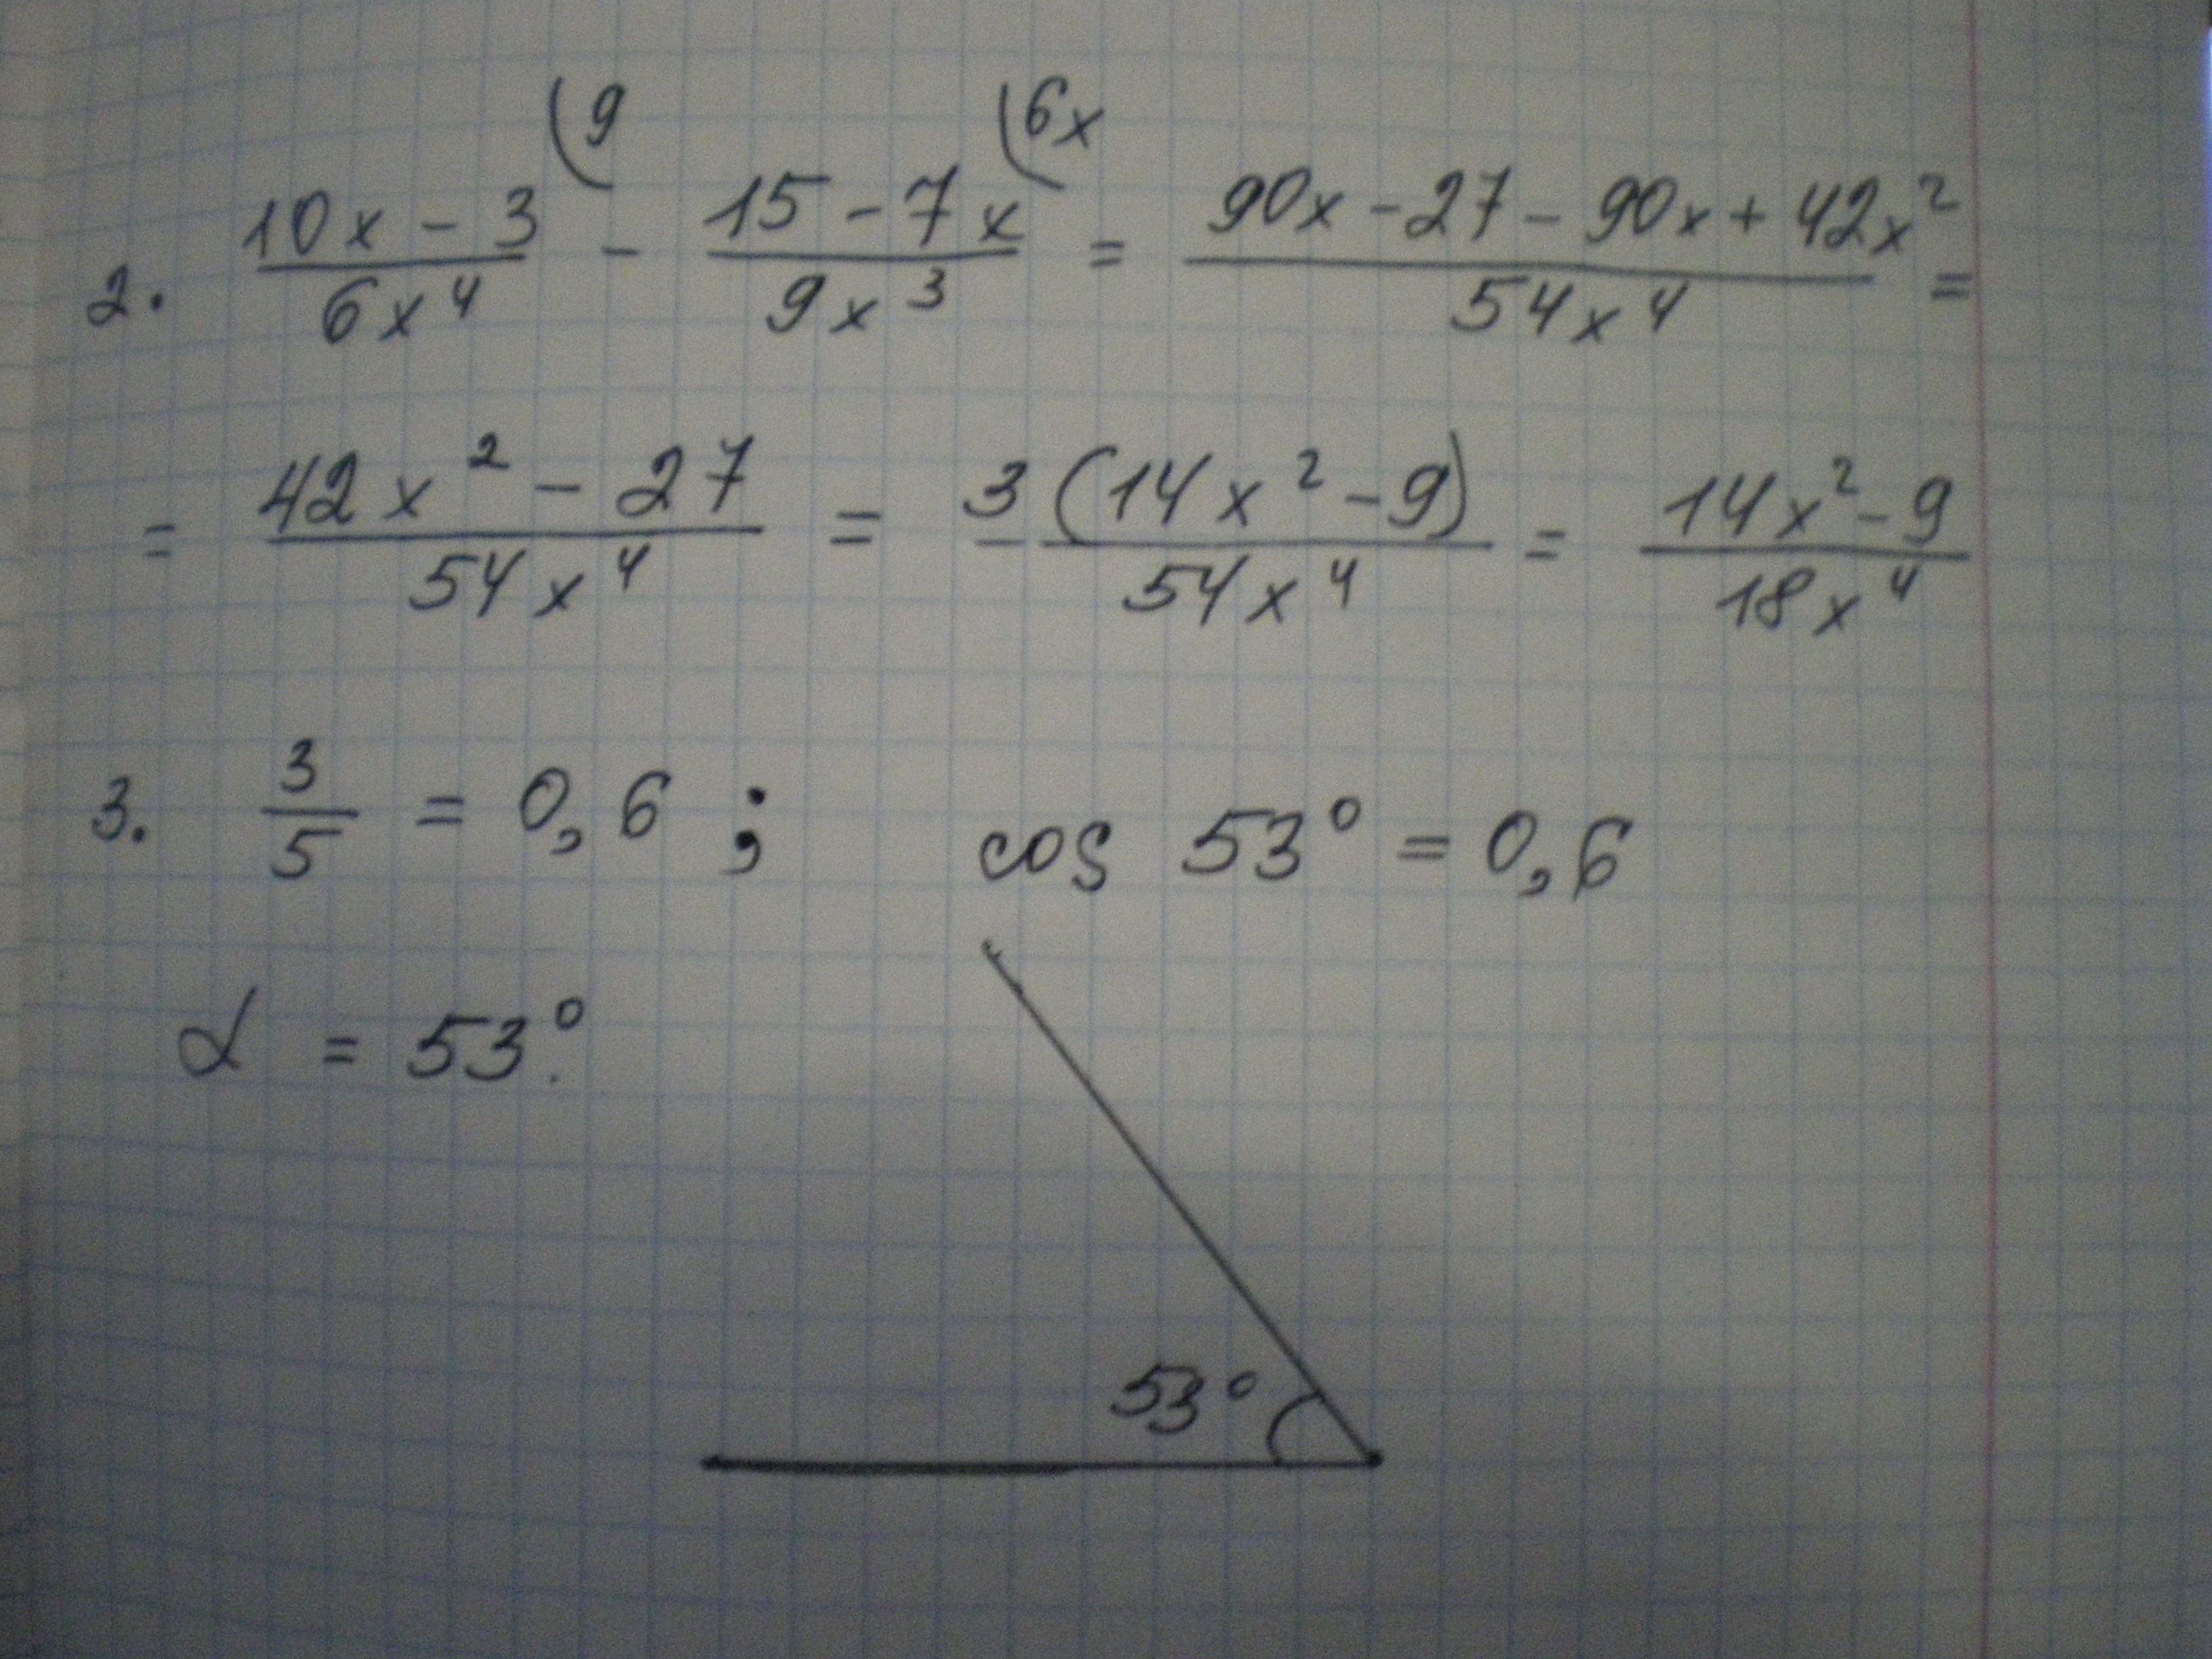 2. (10x - 3)/(6x⁴) (9 - (15 - 7x)/(9x³) (6x = (90x - 27 - 90x + 42x²)/(54x⁴) =
= (42x² - 27)/(54x⁴) = 3(14x² - 9)/(54x⁴) = (14x² - 9)/(18x⁴)
3. 3/5 = 0,6 ; cos 53° = 0,6
α = 53°.
53°